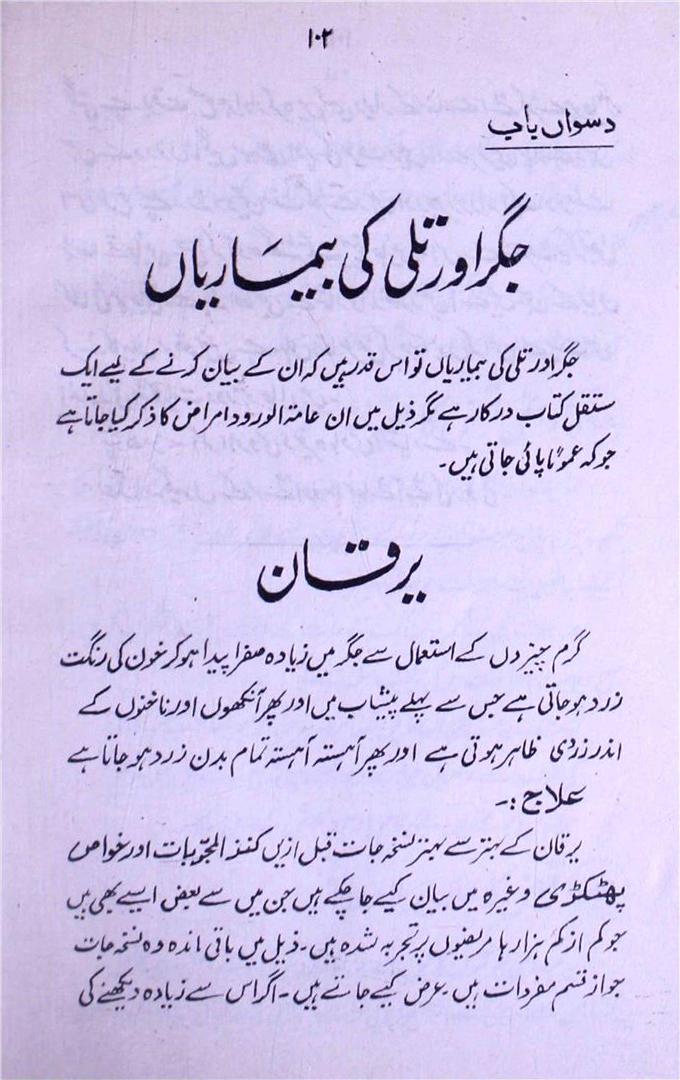 ۱۰۲
دسواں باب
جگر اور تلی کی بیماریاں
جگر اور تلی کی بیماریاں تو اس قدر ہیں کہ ان کے بیان کرنے کے لیے ایک
مستقل کتاب درکار ہے مگر ذیل میں ان عامۃ الورود امراض کا ذکر کیا جاتا ہے
جو کہ عموماً پائی جاتی ہیں۔
یرقان
گرم چیزوں کے استعمال سے جگر میں زیادہ صفرا پیدا ہو کر خون کی رنگت
زرد ہو جاتی ہے جس سے پہلے پیشاب میں اور پھر آنکھوں اور ناخنوں کے
اندر زردی ظاہر ہوتی ہے اور پھر آہستہ آہستہ تمام بدن زرد ہو جاتا ہے
علاج :۔
یرقان کے بہتر سے بہتر نسخہ جات قبل ازیں کنز المجربات اور خواص
پھٹکڑی وغیرہ میں بیان کیے جا چکے ہیں جن میں سے بعض ایسے بھی ہیں
جو کم از کم ہزارہا مریضوں پر تجربہ شدہ ہیں۔ ذیل میں باقی ماندہ وہ نسخہ جات
جو از قسم مفردات ہیں۔ عرض کیے جاتے ہیں۔ اگر اس سے زیادہ دیکھنے کی